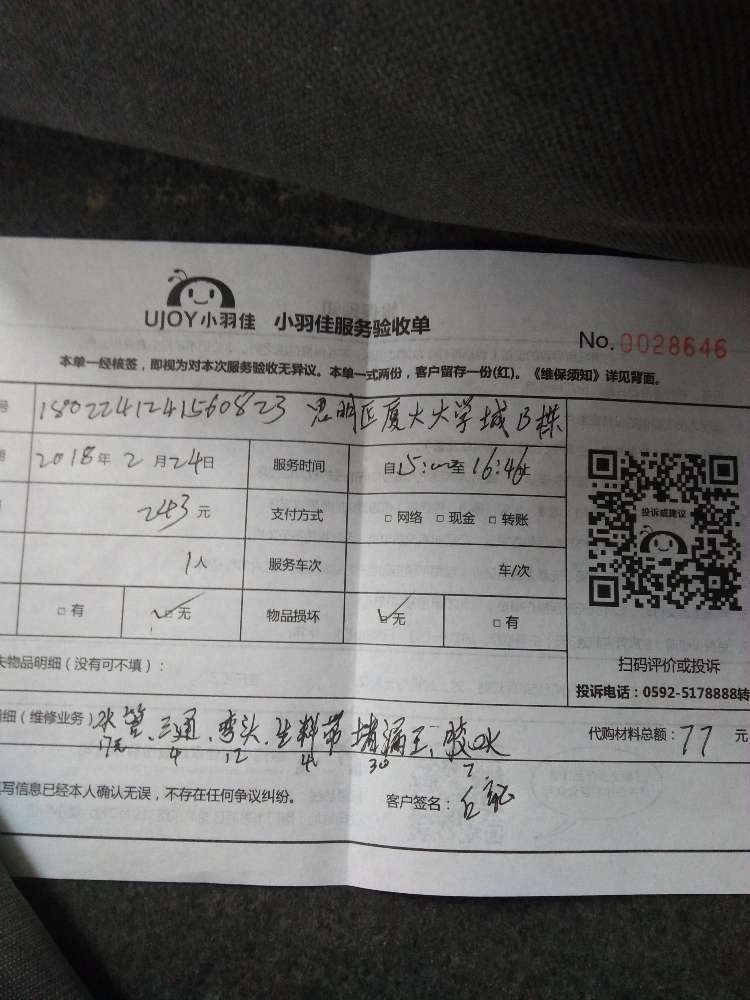 UJOY小羽佳 小羽佳服务验收单
No. 0028646
本单一经核签，即视为对本次服务验收无异议。本单一式两份，客户留存一份(红)。《维保须知》详见背面。
号 1802241241560823 思明区厦大大学城B栋
2018年2月24日 服务时间 自15:00至16:46止
243元 支付方式 □ 网络 □ 现金 □ 转账
投诉或建议
1人 服务车次 车/次
□ 有 □ 无 物品损坏 □ 无 □ 有
失物品明细（没有可不填）：
扫码评价或投诉
投诉电话：0592-5178888转
细（维修业务） 水管、三通、弯头、生料带 堵漏王、胶水
17元 4 12 4 30 7
代购材料总额：77 元
写信息已经本人确认无误，不存在任何争议纠纷。
客户签名：丘